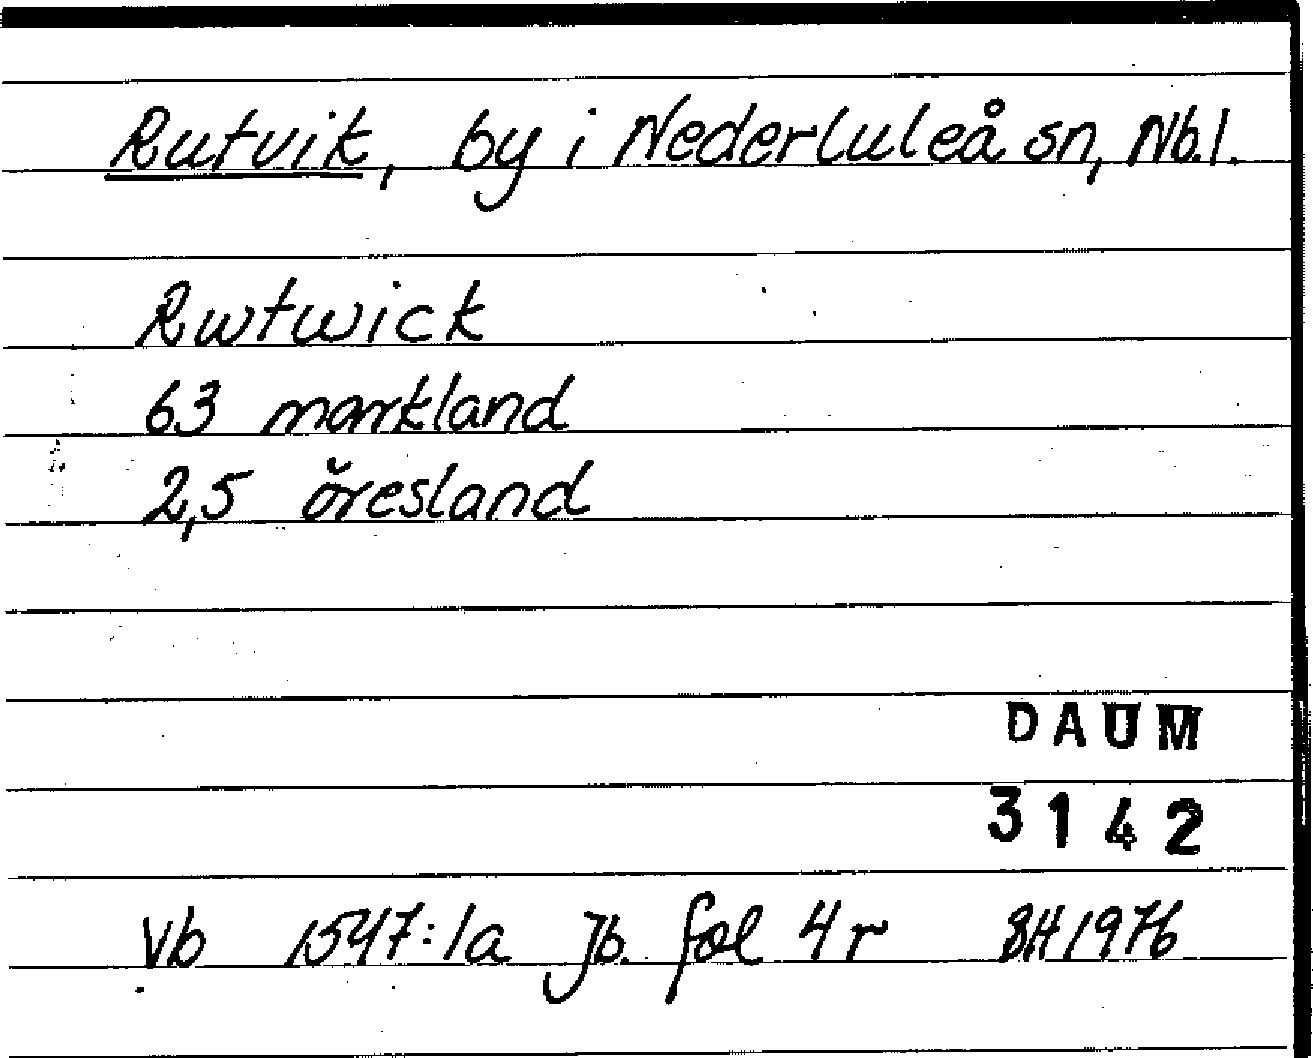 Rutvik, by i Nederluleå sn, Nb.l.
Rwtwick
63 markland
2,5 öresland
DAUM
3142
Vb 1547:1a Jb. fol 4r BH 1976